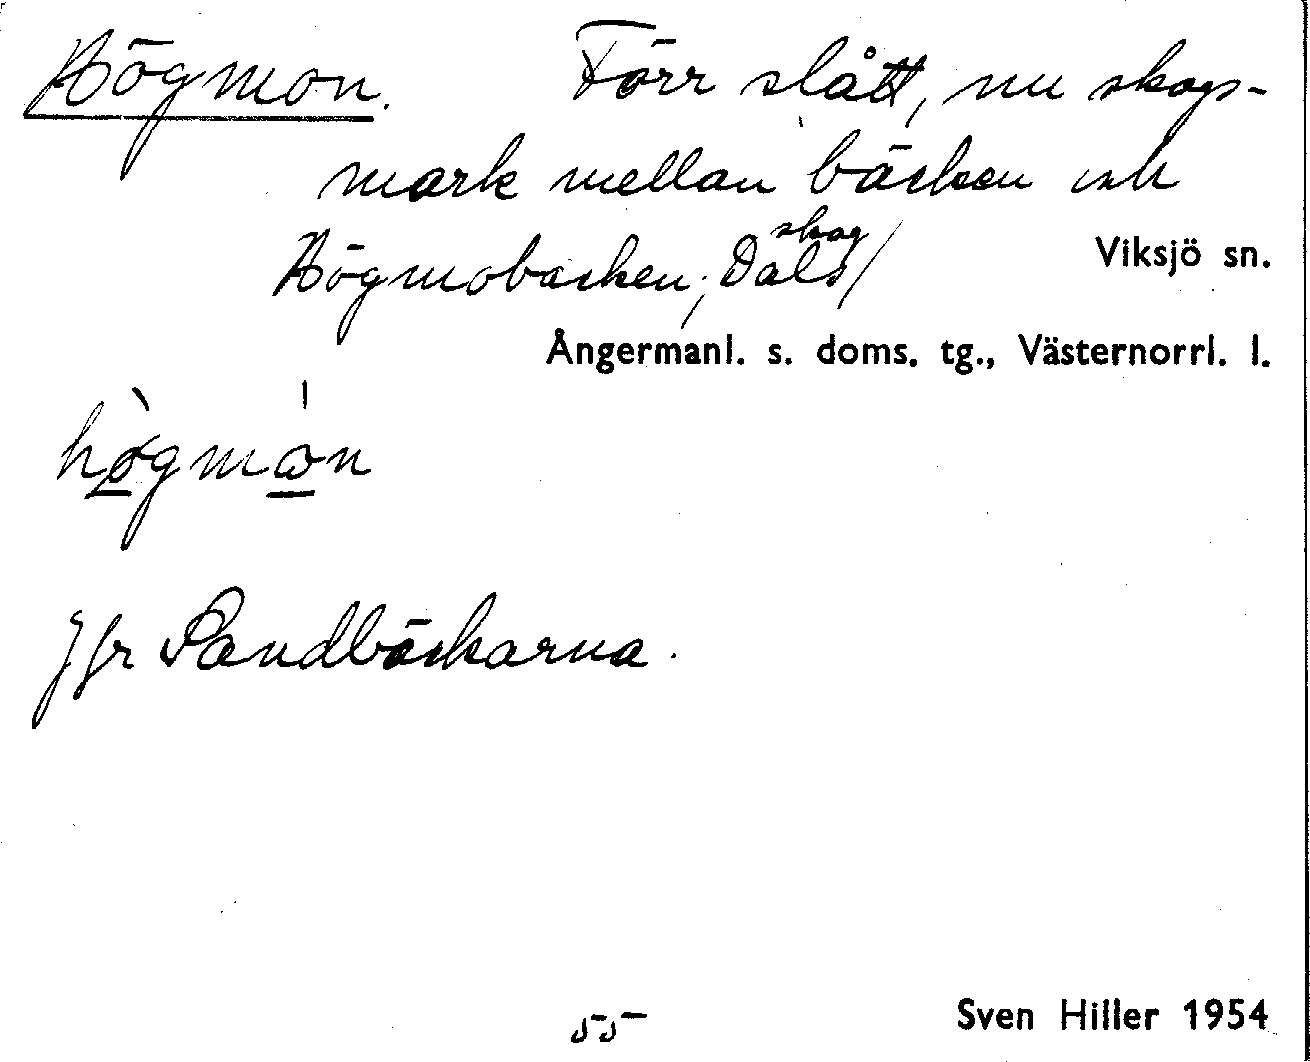 Högmon. Förr slått, nu skogs-
mark mellan bäcken och
Högmobacken, Dals skog/
Viksjö sn.
Ångermanl. s. doms. tg., Västernorrl. l.
hø̀gmɷ́n
Jfr Sandbäckarna.
55
Sven Hiller 1954